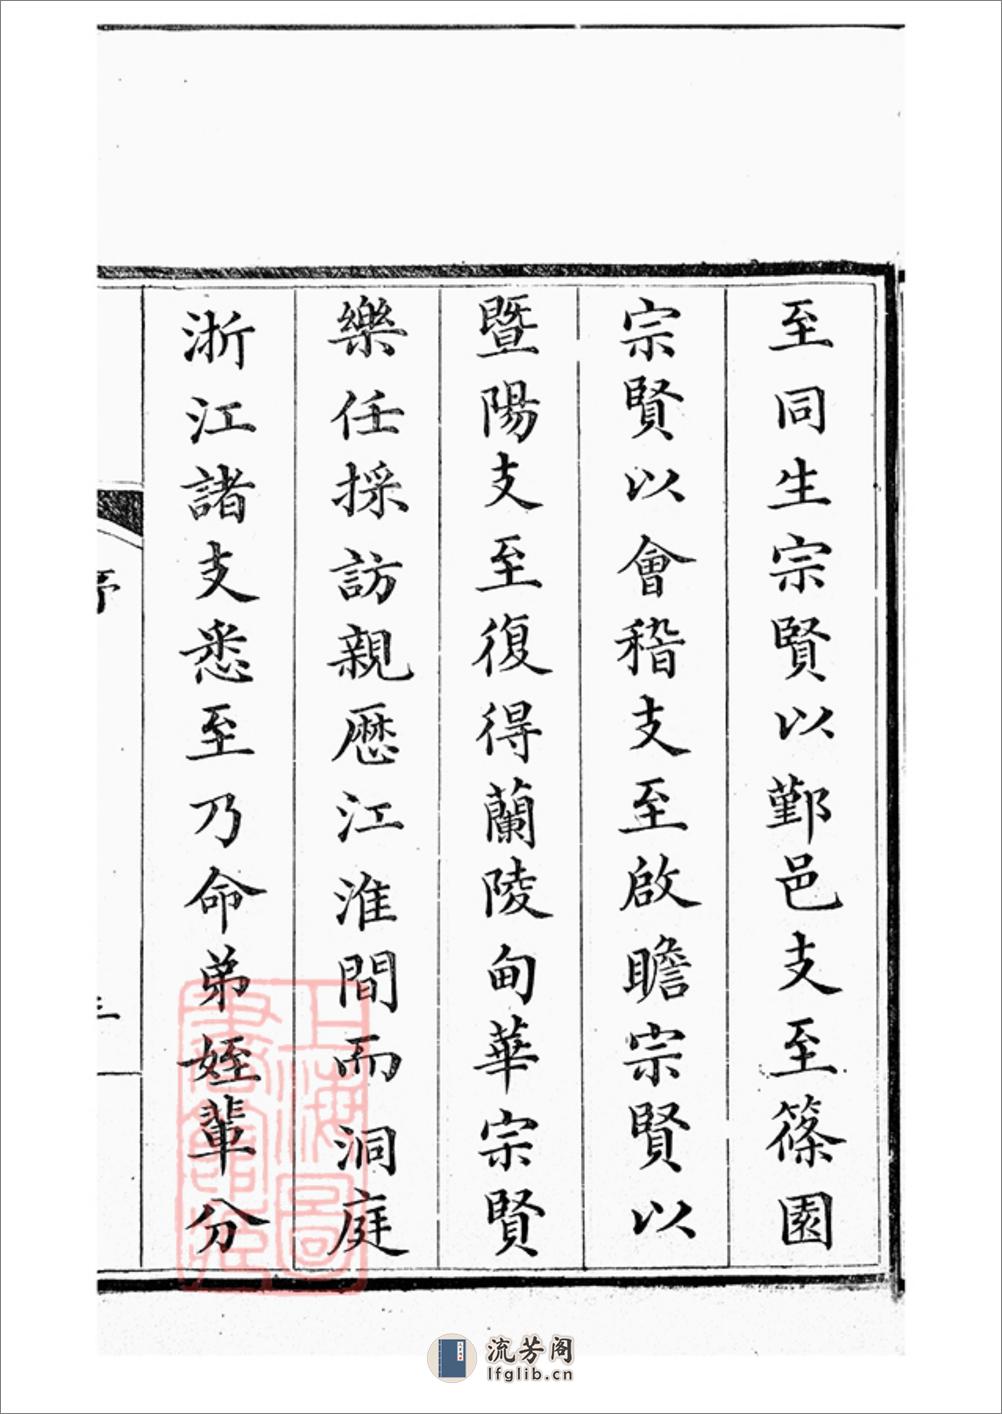 至同生宗賢以鄞邑支至篠園
宗賢以會稽支至啟瞻宗賢以
暨陽支至復得蘭陵甸華宗賢
樂任採訪親歷江淮間而洞庭
浙江諸支悉至乃命弟姪輩分
序
三
上海圖書館藏
流芳阁
lfglib.cn